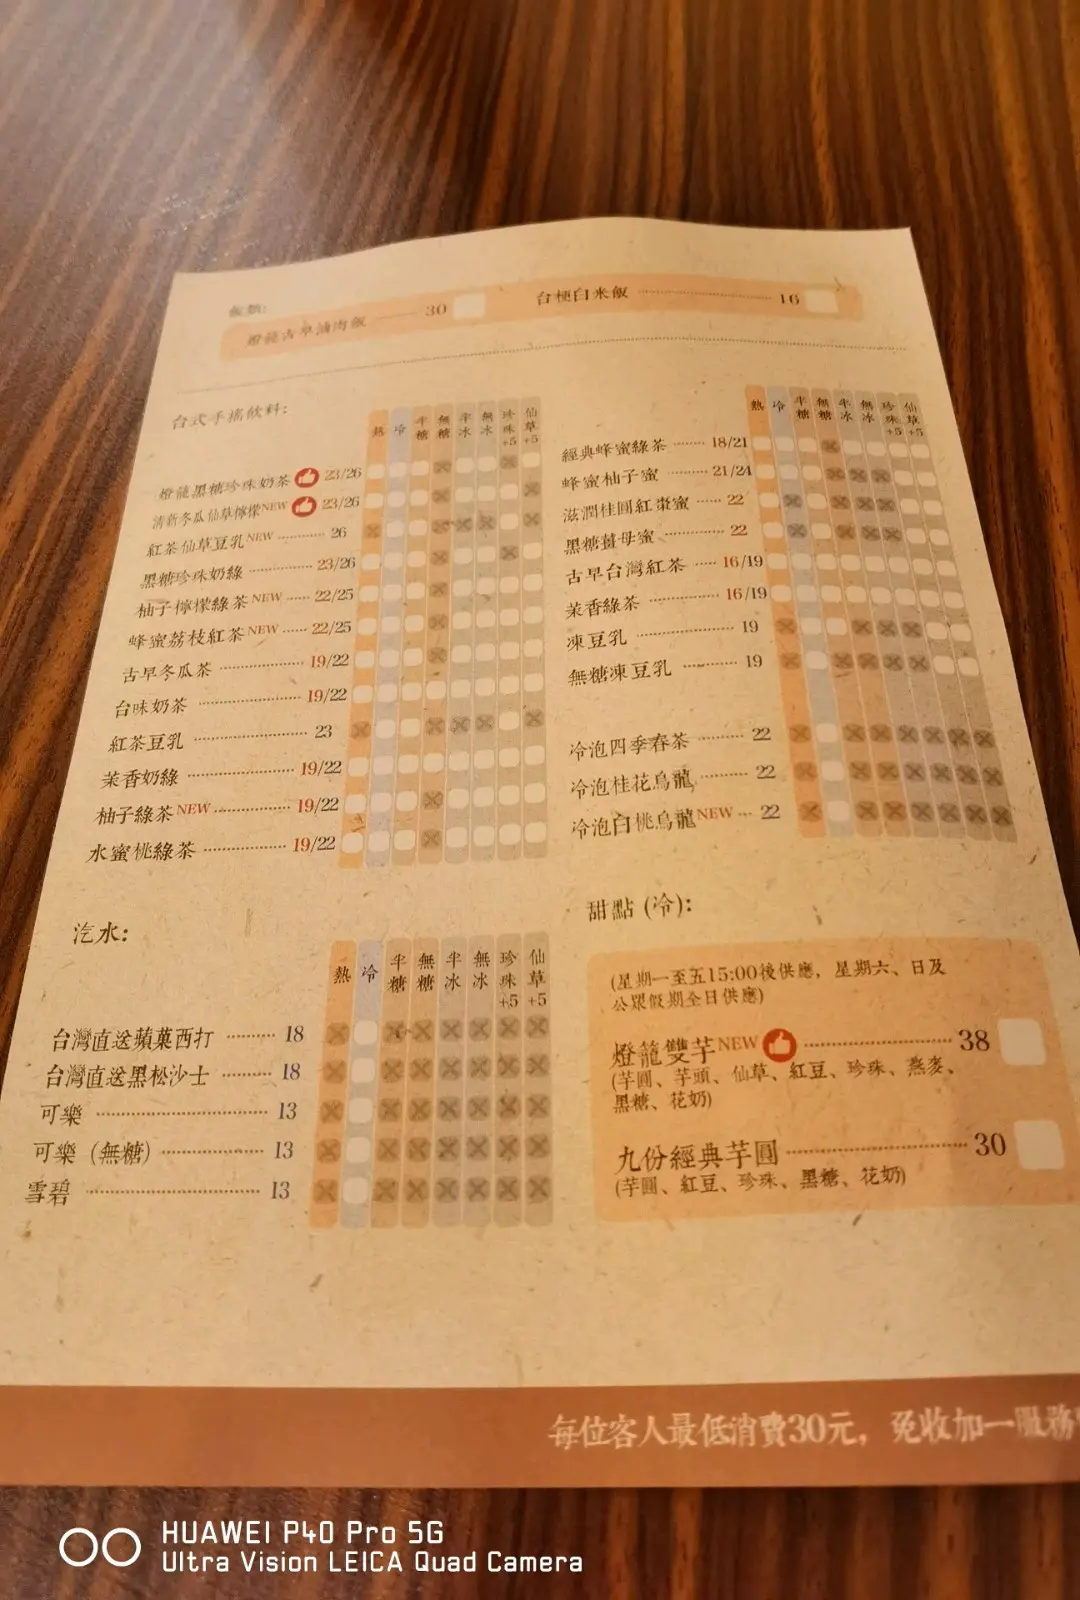 飯類:
燈籠古早滷肉飯 30
台梗白米飯 16
台式手搖飲料:
熱 冷 半糖 無糖 半冰 無冰 珍珠+5 仙草+5
燈龍黑糖珍珠奶茶 23/26
清新冬瓜仙草檸檬NEW 23/26
紅茶仙草豆乳NEW 26
黑糖珍珠奶綠 23/26
柚子檸檬綠茶NEW 22/25
蜂蜜荔枝紅茶NEW 22/25
古早冬瓜茶 19/22
台味奶茶 19/22
紅茶豆乳 23
茉香奶綠 19/22
柚子綠茶NEW 19/22
水蜜桃綠茶 19/22
熱 冷 半糖 無糖 半冰 無冰 珍珠+5 仙草+5
經典蜂蜜綠茶 18/21
蜂蜜柚子蜜 21/24
滋潤桂圓紅棗蜜 22
黑糖薑母蜜 22
古早台灣紅茶 16/19
茉香綠茶 16/19
凍豆乳 19
無糖凍豆乳 19
冷泡四季春茶 22
冷泡桂花烏龍 22
冷泡白桃烏龍NEW 22
汽水:
熱 冷 半糖 無糖 半冰 無冰 珍珠+5 仙草+5
台灣直送蘋菓西打 18
台灣直送黑松沙士 18
可樂 13
可樂 (無糖) 13
雪碧 13
甜點 (冷):
(星期一至五15:00後供應, 星期六、日及
公眾假期全日供應)
燈籠雙芋NEW 38
(芋圓、芋頭、仙草、紅豆、珍珠、燕麥、
黑糖、花奶)
九份經典芋圓 30
(芋圓、紅豆、珍珠、黑糖、花奶)
每位客人最低消費30元, 免收加一服務
HUAWEI P40 Pro 5G
Ultra Vision LEICA Quad Camera